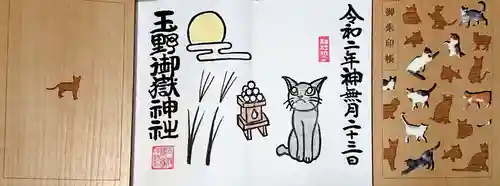 御朱印帳
令和二年神無月二十三日
玉野御嶽神社